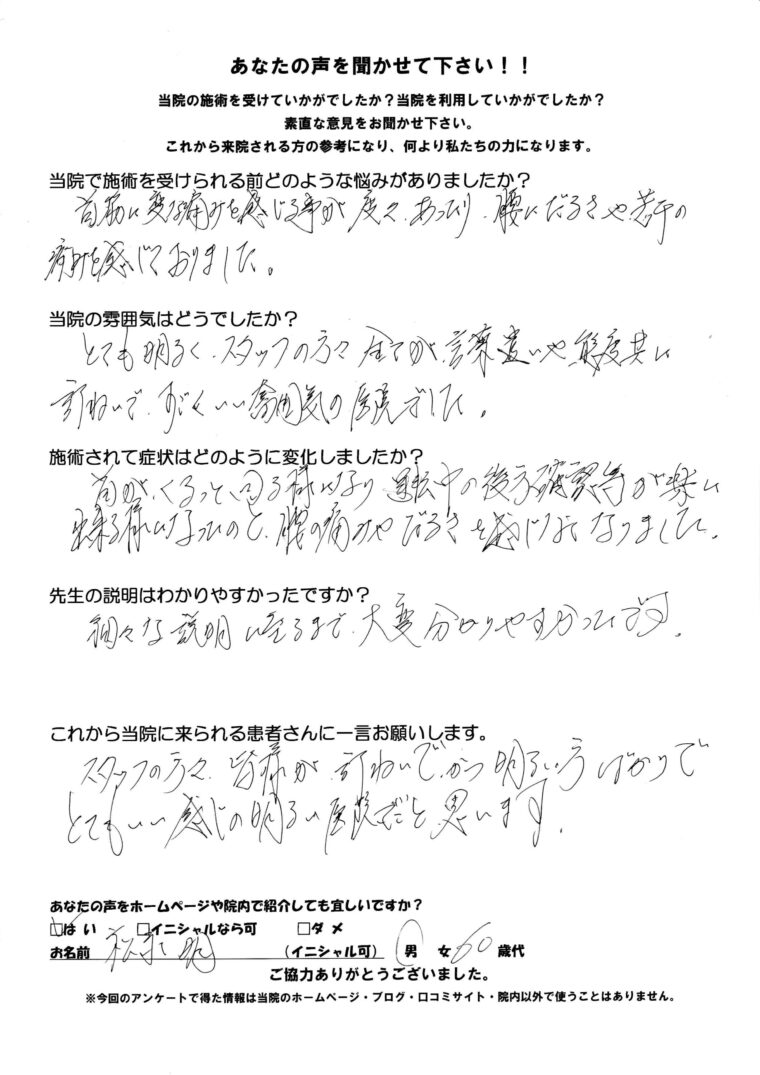 あなたの声を聞かせて下さい！！
当院の施術を受けていかがでしたか？当院を利用していかがでしたか？
素直な意見をお聞かせ下さい。
これから来院される方の参考になり、何より私たちの力になります。
当院で施術を受けられる前どのような悩みがありましたか？
首筋に変な痛みを感じる事が度々あったり、腰にだるさや若干の
痛みを感じておりました。
当院の雰囲気はどうでしたか？
とても明るく、スタッフの方々全てが、言葉遣いや態度共に
ていねいで、すごくいい雰囲気の医院でした。
施術されて症状はどのように変化しましたか？
首が、くるっと、回る様になり運転中の後方確認等が楽に
出来る様になったのと、腰の痛みやだるさを感じなくなりました。
先生の説明はわかりやすかったですか？
細々な説明に至るまで、大変分かりやすかったです。
これから当院に来られる患者さんに一言お願いします。
スタッフの方々、皆様が、ていねいで、かつ明るい方ばかりで
とてもいい感じの明るい医院だと思います。
あなたの声をホームページや院内で紹介しても宜しいですか？
☑はい □イニシャルなら可 □ダメ
お名前 明 （イニシャル可） 男 女 60 歳代
ご協力ありがとうございました。
※今回のアンケートで得た情報は当院のホームページ・ブログ・口コミサイト・院内以外で使うことはありません。